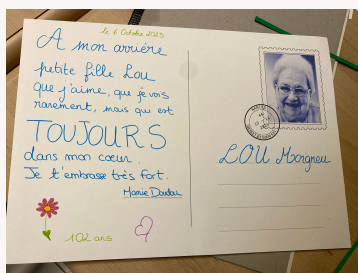 le 6 Octobre 2025
A mon arrière
petite fille Lou
que j'aime, que je vois
rarement, mais qui est
TOUJOURS
dans mon cœur.
Je t'embrasse très fort.
Mamie Doudou
102 ans
LOU